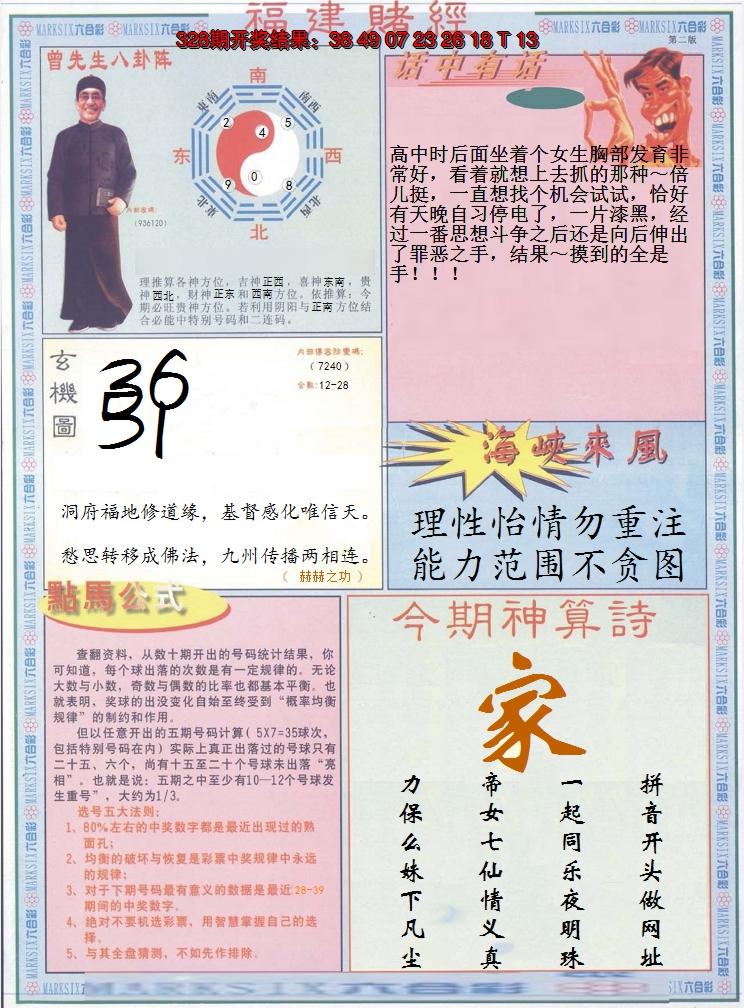 福建賭經
328期开奖结果：38 49 07 23 26 18 T 13
MARKSIX六合彩
第二版
曾先生八卦阵
南
东南
南西
2
5
4
东
西
9
0
8
东北
北西
北
内部密碼:
(936120)
理推算各神方位，吉神正西，喜神东南，贵
神西北，财神正东和西南方位。依推算：今
期必旺贵神方位。若利用阴阳与正南方位结
合必能中特别号码和二连码。
话中有话
高中时后面坐着个女生胸部发育非
常好，看着就想上去抓的那种～倍
儿挺，一直想找个机会试试，恰好
有天晚自习停电了，一片漆黑，经
过一番思想斗争之后还是向后伸出
了罪恶之手，结果～摸到的全是
手！！！
玄機圖
(7240)
合数:12-28
洞府福地修道缘，基督感化唯信天。
愁思转移成佛法，九州传播两相连。
（ 赫赫之功 ）
海峡來風
理性怡情勿重注
能力范围不贪图
點馬公式
查翻资料，从数十期开出的号码统计结果，你
可知道，每个球出落的次数是有一定规律的。无论
大数与小数，奇数与偶数的比率也都基本平衡。也
就表明，奖球的出没变化自始至终受到“概率均衡
规律”的制约和作用。
但以任意开出的五期号码计算( 5X7=35球次，
包括特别号码在内) 实际上真正出落过的号球只有
二十五、六个，尚有十五至二十个号球未出落“亮
相”。也就是说：五期之中至少有10—12个号球发
生重号”，大约为1/3。
选号五大法则：
1、80%左右的中奖数字都是最近出现过的熟
面孔；
2、均衡的破坏与恢复是彩票中奖规律中永远
的规律；
3、对于下期号码最有意义的数据是最近28-39
期间的中奖数字。
4、绝对不要机选彩票，用智慧掌握自己的选
择。
5、与其全盘猜测，不如先作排除。
今期神算詩
家
拼音开头做网址
一起同乐夜明珠
帝女七仙情义真
力保么妹下凡尘